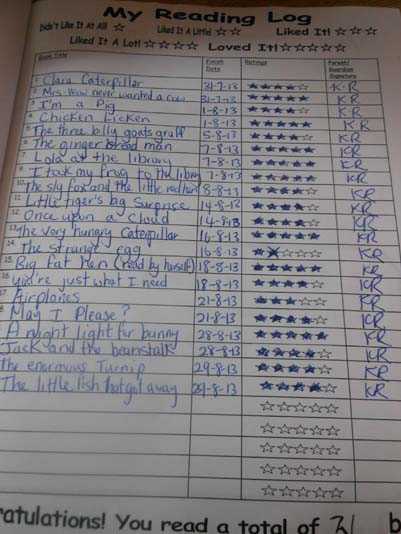 My Reading Log
Didn't Like It At All! ☆ Liked It A Little! ☆☆ Liked It! ☆☆☆
Liked It A Lot! ☆☆☆☆ Loved It! ☆☆☆☆☆
Book Title Finish Date Ratings Parent/Guardian Signature
1. Clara Caterpillar 31-7-13 ★★★★☆ K.R
2. Mrs. Wow never wanted a cow 31-7-13 ★★★★★ KR
3. I'm a Pig 1-8-13 ★★★★☆ KR
4. Chicken Licken 1-8-13 ★★★★★ KR
5. The three billy goats gruff 5-8-13 ★★★★☆ KR
6. The ginger bread man 7-8-13 ★★★★★ KR
7. Lola at the library 7-8-13 ★★★★★ KR
9. I took my frog to the library 7-8-13 ★★★★★ KR
10. The sly fox and the little red hen 8-8-13 ★★★★☆ KR
11. Little tiger's big surprise 14-8-13 ★★★★☆ KR
12. Once upon a cloud 14-8-13 ★★★★☆ KR
13. The very hungry Caterpillar 16-8-13 ★★★★★ KR
14. The strange egg 16-8-13 KR
15. Big fat hen (read by herself) 18-8-13 ★★★★★ KR
16. you're just what I need 18-8-13 ★★★★☆ KR
17. Airplanes 21-8-13 ★★★☆☆ KR
May I Please? 21-8-13 ★★★★☆ KR
A night light for bunny 28-8-13 ★★★★★ KR
Jack and the beanstalk 28-8-13 ★★★★☆ KR
the enormous Turnip 29-8-13 ★★★★☆ KR
The little fish that got away 29-8-13 ★★★★☆ KR
☆☆☆☆☆
☆☆☆☆☆
☆☆☆☆☆
☆☆☆☆☆
☆☆☆☆☆
ratulations! You read a total of 21 b